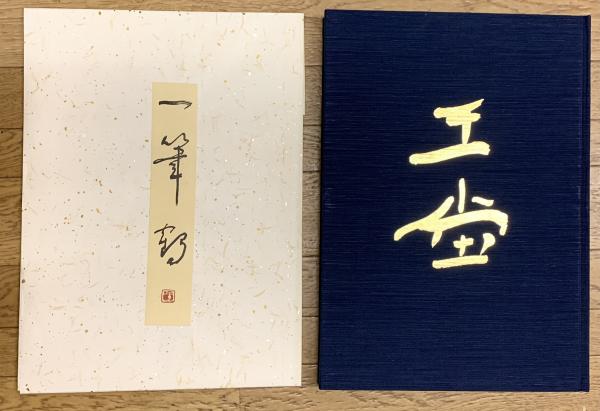 一筆鶴
玉堂